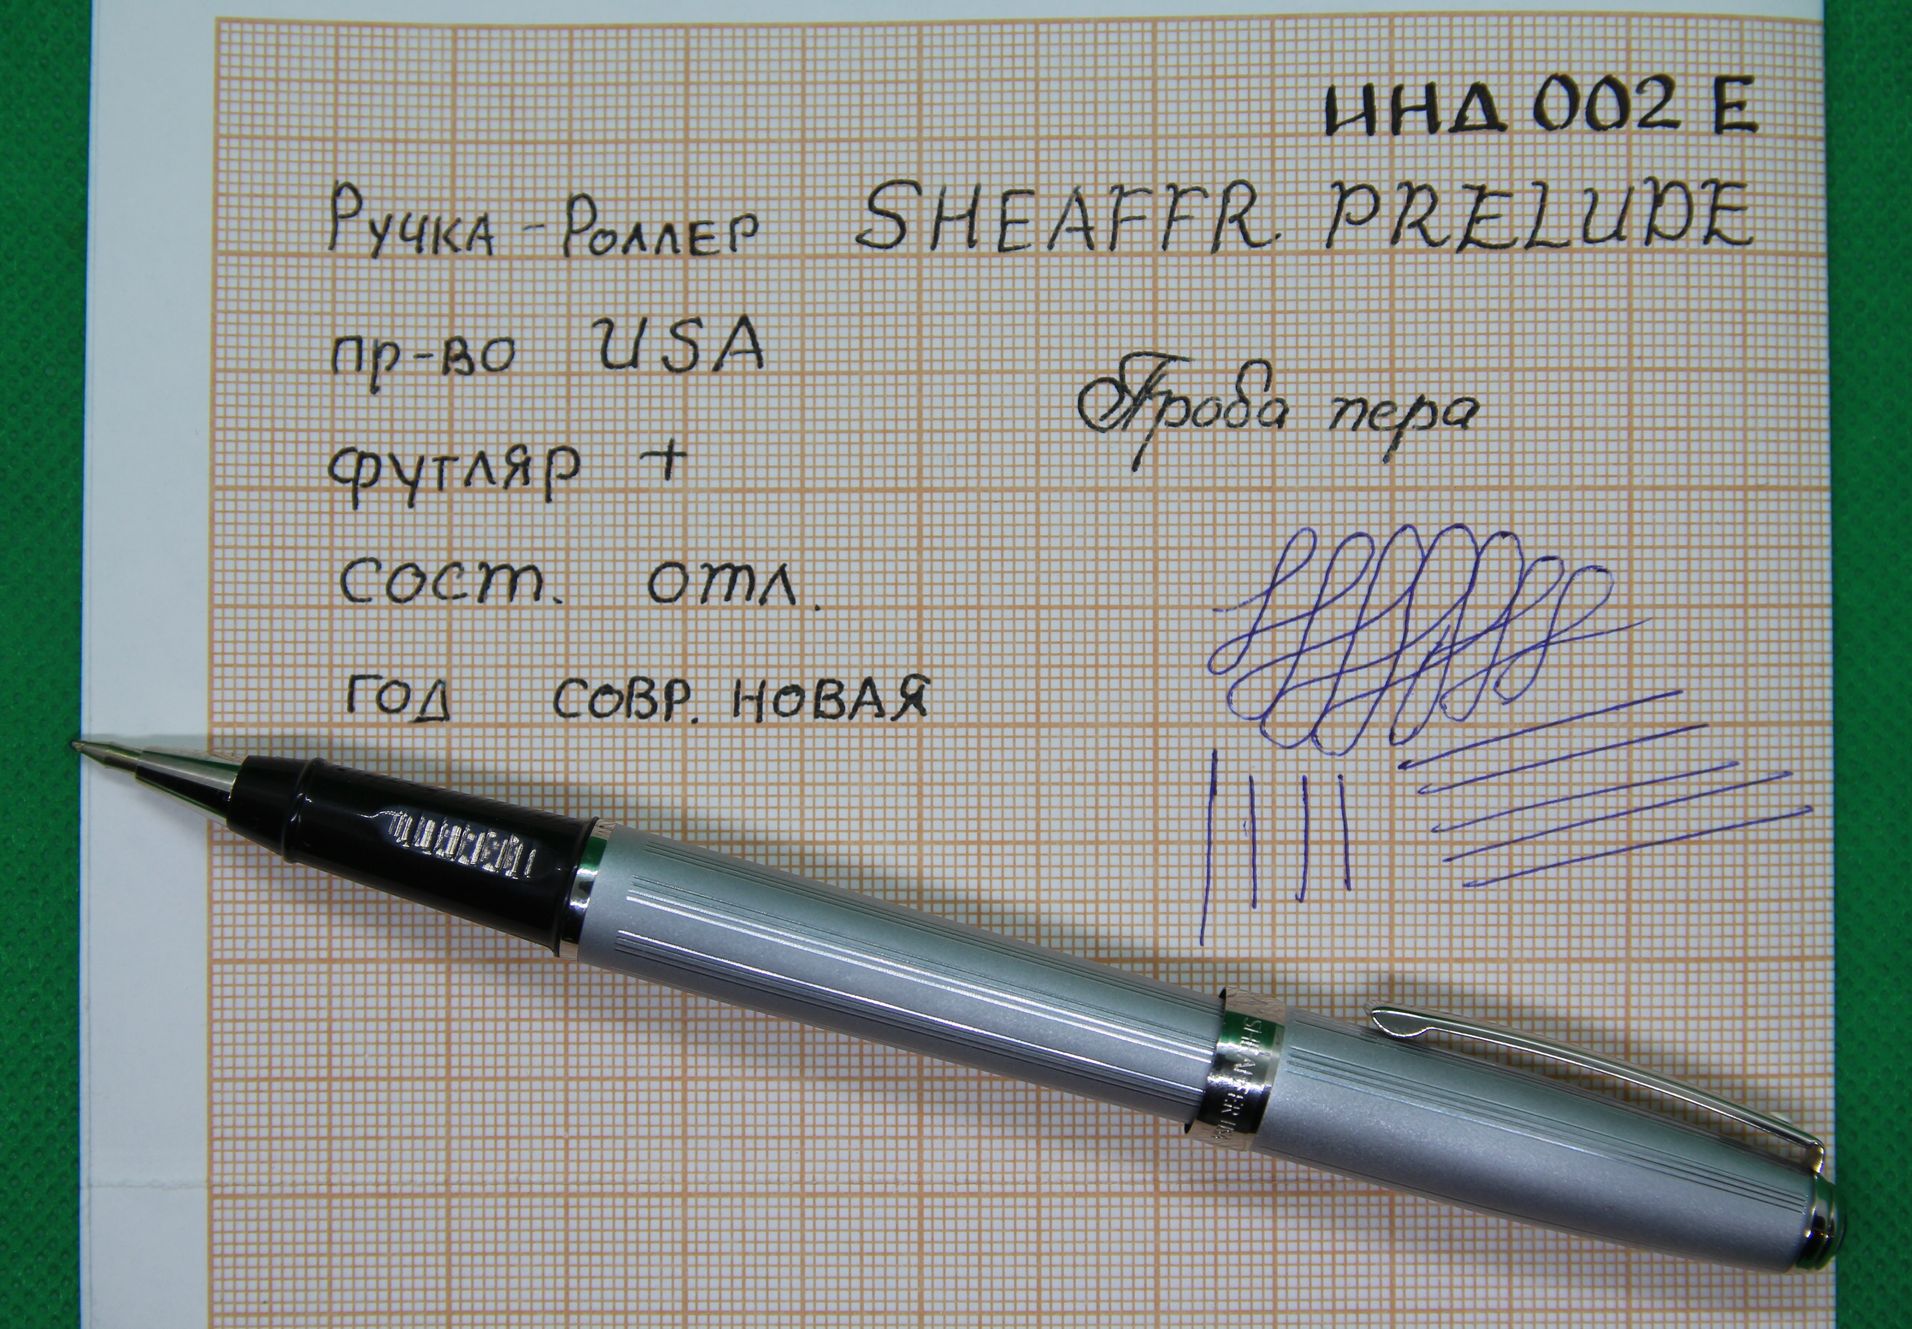 ИНД 002 Е
Ручка - Роллер SHEAFFR. PRELUDE
пр-во USA
Проба пера
футляр +
сост. отл.
год совр. новая
SHEAFFER USA